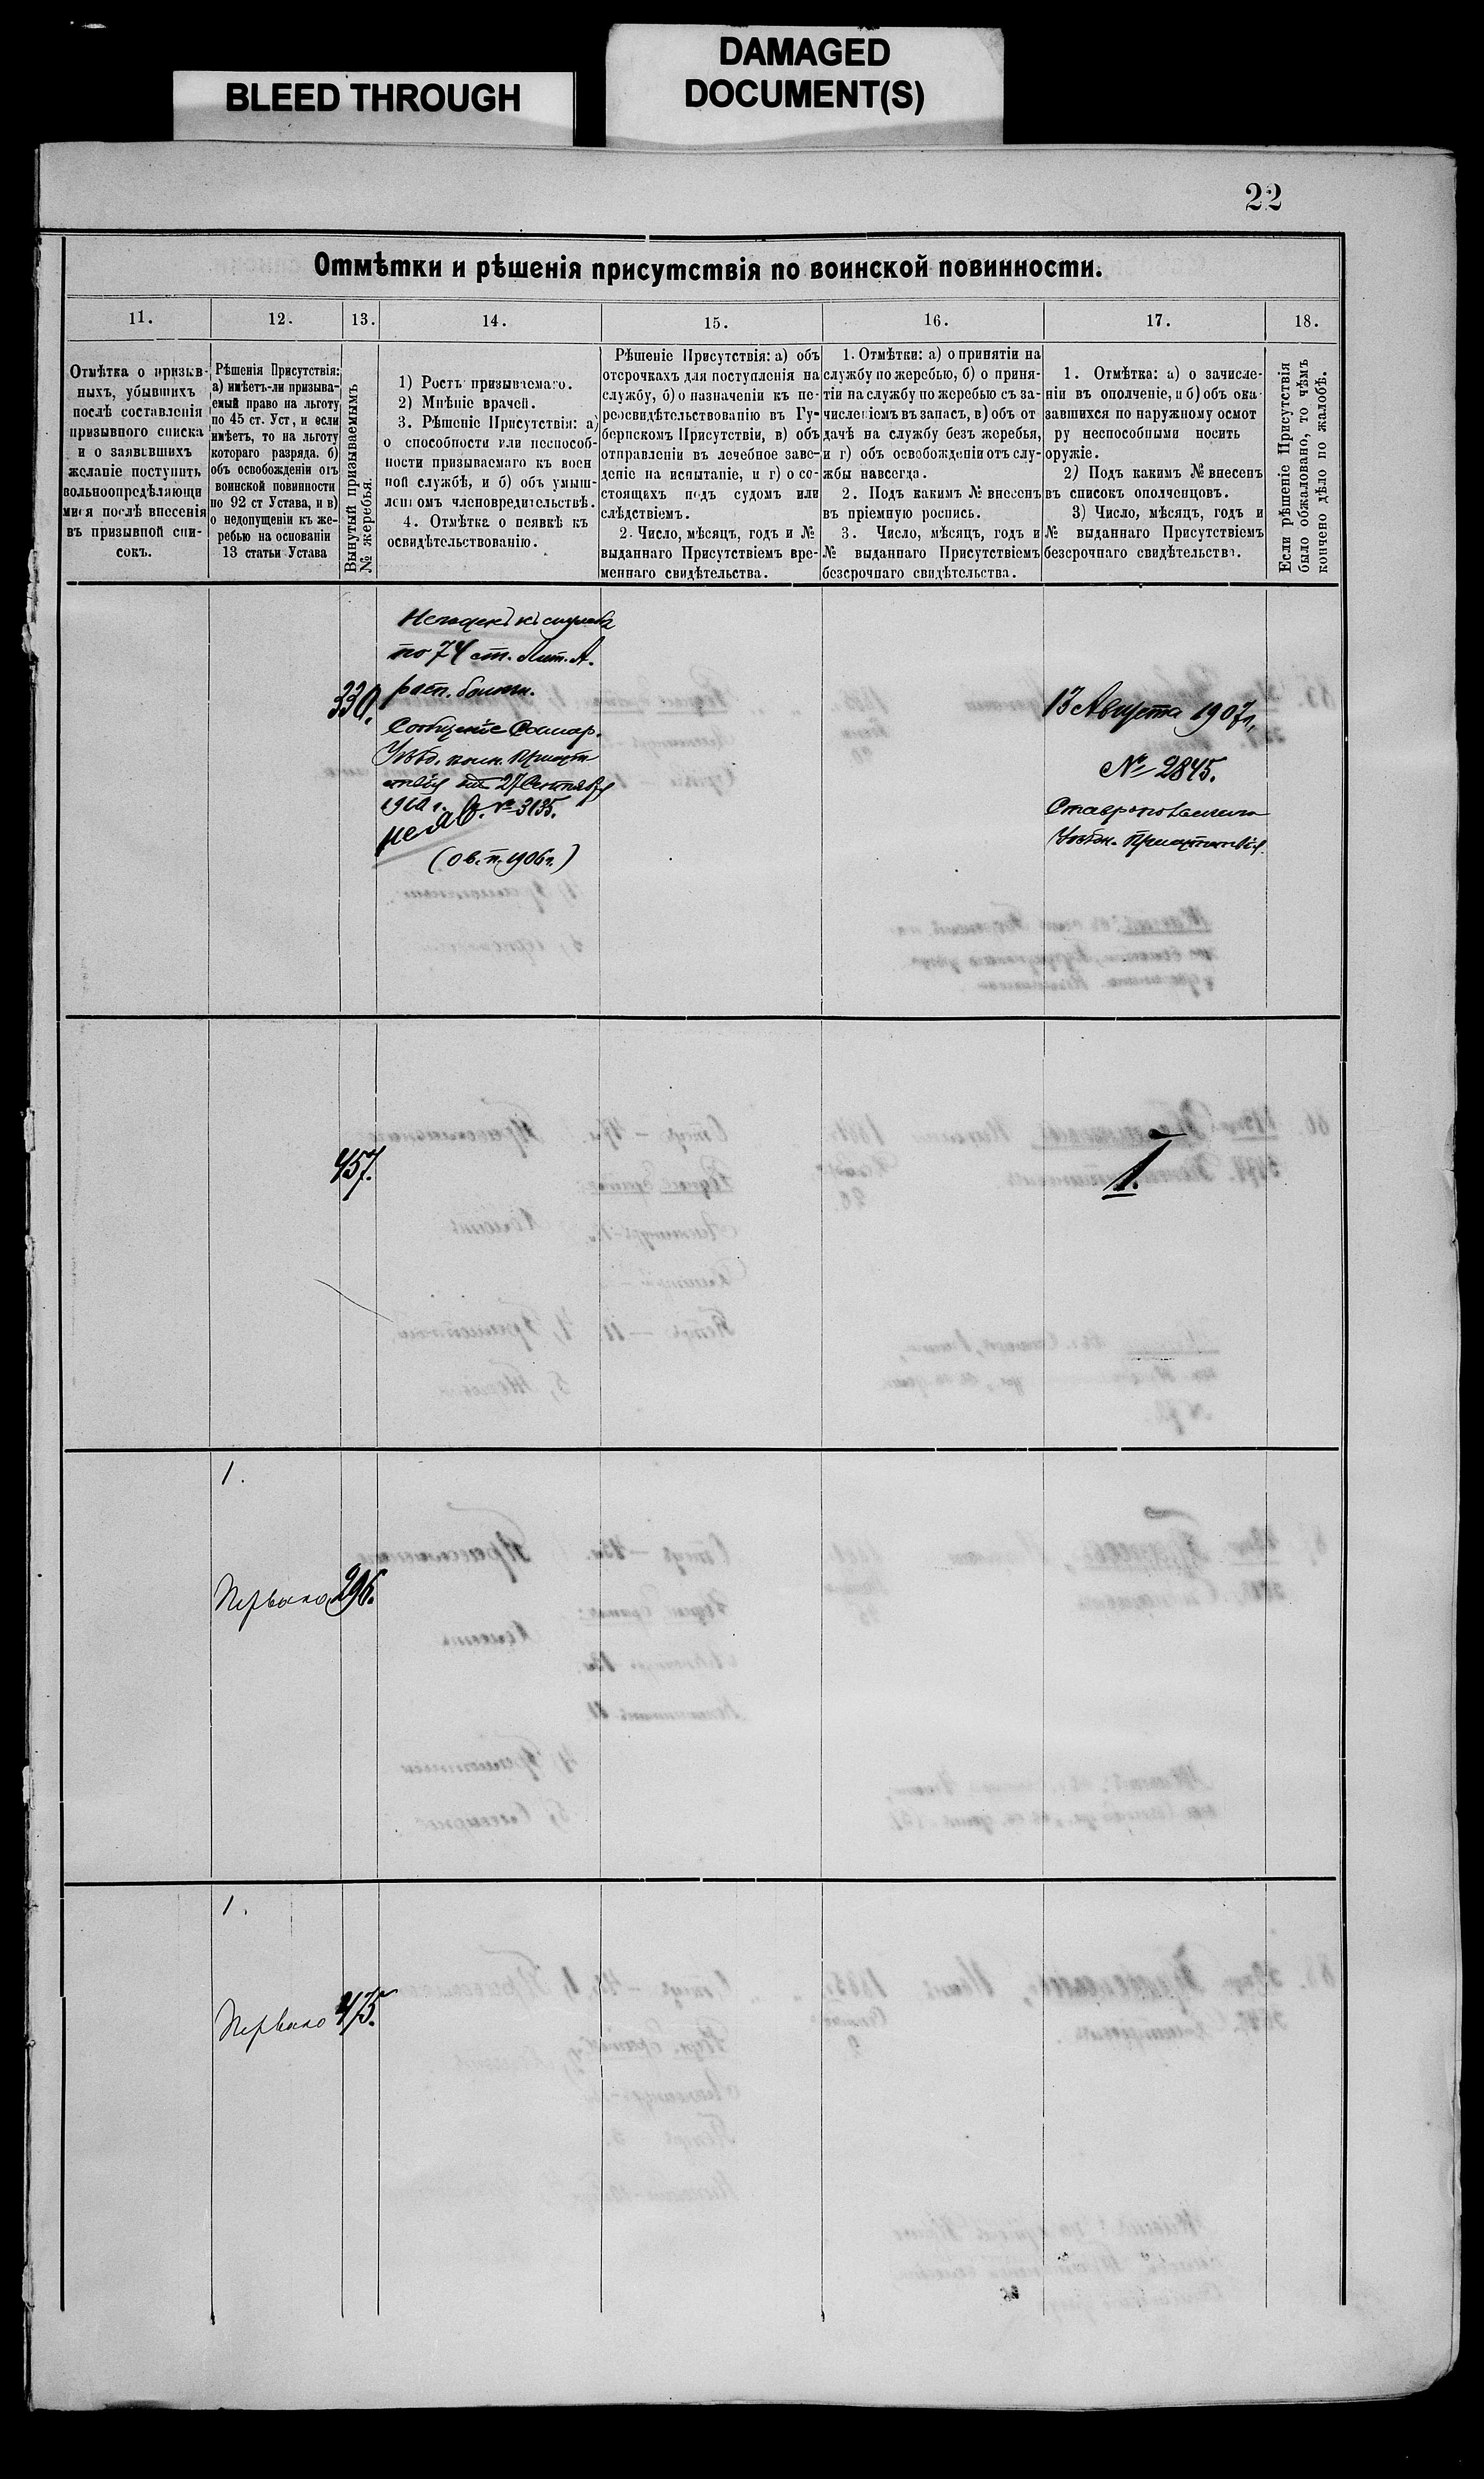 BLEED THROUGH
DAMAGED
DOCUMENT(S)
22
Отмѣтки и рѣшенія присутствія по воинской повинности.
11.
12.
13.
14.
15.
16.
17.
18.
Отмѣтка о призыв-
ныхъ, убывшихъ
послѣ составленія
призывного списка
и о заявившихъ
желаніе поступить
вольноопредѣляющи
мися послѣ внесенія
въ призывной спи-
сокъ.
Рѣшенія Присутствія:
а) имѣетъ-ли призыва-
емый право на льготу
по 45 ст. Уст, и если
имѣетъ, то на льготу
котораго разряда. б)
объ освобожденіи отъ
воинской повинности
по 92 ст Устава, и в)
о недопущеніи къ же-
ребью на основаніи
13 статьи Устава
Вынутый призываемымъ
№ жеребья.
1) Ростъ призываемаго.
2) Мнѣніе врачей.
3. Рѣшеніе Присутствія: а)
о способности или неспособ-
ности призываемаго къ воен
ной службѣ, и б) объ умыш-
ленномъ членовредительствѣ.
4. Отмѣтка о неявкѣ къ
освидѣтельствованію.
Рѣшеніе Присутствія: а) объ
отсрочкахъ для поступленія на
службу, б) о назначеніи къ пе-
реосвидѣтельствованію въ Гу-
бернскомъ Присутствіи, в) объ
отправленіи въ лечебное заве-
деніе на испытаніе, и г) о со-
стоящахъ подъ судомъ или
слѣдствіемъ.
2. Число, мѣсяцъ, годъ и №
выданнаго Присутствіемъ вре-
меннаго свидѣтельства.
1. Отмѣтки: а) о принятіи на
службу по жеребью, б) о приня-
тіи на службу по жеребью съ за-
численіемъ въ запасъ, в) объ от
дачѣ на службу безъ жеребья,
и г) объ освобожденіи отъ слу-
жбы навсегда.
2. Подъ какимъ № внесенъ
въ пріемную роспись.
3. Число, мѣсяцъ, годъ и
№ выданнаго Присутствіемъ
безсрочнаго свидѣтельства.
1. Отмѣтка: а) о зачисле-
ніи въ ополченіе, и б) объ ока
завшихся по наружному осмот
ру неспособными носить
оружіе.
2) Подъ какимъ № внесенъ
въ списокъ ополченцовъ.
3) Число, мѣсяцъ, годъ и
№ выданнаго Присутствіемъ
безсрочнаго свидѣтельства.
Если рѣшеніе Присутствія
было обжаловано, то чѣмъ
кончено дѣло по жалобѣ.
330.
по 74 ст. Лит. А.
расп. болѣзн.
Сообщеніе Самар.
Уѣзд. воин. Присут
ствія 27 Сентября
1910 г. № 3135.
(ов. п. 1906 г.)
13 Августа 1907 г,
№ 2845.
Ставропольскаго
Уѣздн. Присутствія.
457.
1.
1.
Перваго
296.
1.
Перваго
475.